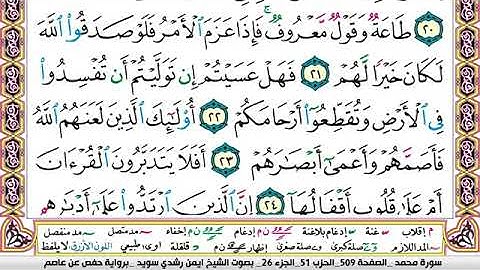 ٢٠ طَاعَةٌ وَقَوْلٌ مَّعْرُوفٌ ۚ فَإِذَا عَزَمَ ٱلْأَمْرُ فَلَوْ صَدَقُوا۟ ٱللَّهَ
لَكَانَ خَيْرًا لَّهُمْ ٢١ فَهَلْ عَسَيْتُمْ إِن تَوَلَّيْتُمْ أَن تُفْسِدُوا۟
فِى ٱلْأَرْضِ وَتُقَطِّعُوٓا۟ أَرْحَامَكُمْ ٢٢ أُو۟لَـٰٓئِكَ ٱلَّذِينَ لَعَنَهُمُ ٱللَّهُ
فَأَصَمَّهُمْ وَأَعْمَىٰٓ أَبْصَـٰرَهُمْ ٢٣ أَفَلَا يَتَدَبَّرُونَ ٱلْقُرْءَانَ
أَمْ عَلَىٰ قُلُوبٍ أَقْفَالُهَآ ٢٤ إِنَّ ٱلَّذِينَ ٱرْتَدُّوا۟ عَلَىٰٓ أَدْبَـٰرِهِم
م إقلاب غنة إدغام بلاغنة إدغام ن م إخفاء مد متصل مد منفصل
المد اللازم صلة كبرى صلة صغرى إظهار ن م قلقلة او ى طبيعي اللون الأزرق لا يلفظ
سورة محمد _الصفحة 509_الحزب 51_الجزء 26_ بصوت الشيخ ايمن رشدي سويد _برواية حفص عن عاصم